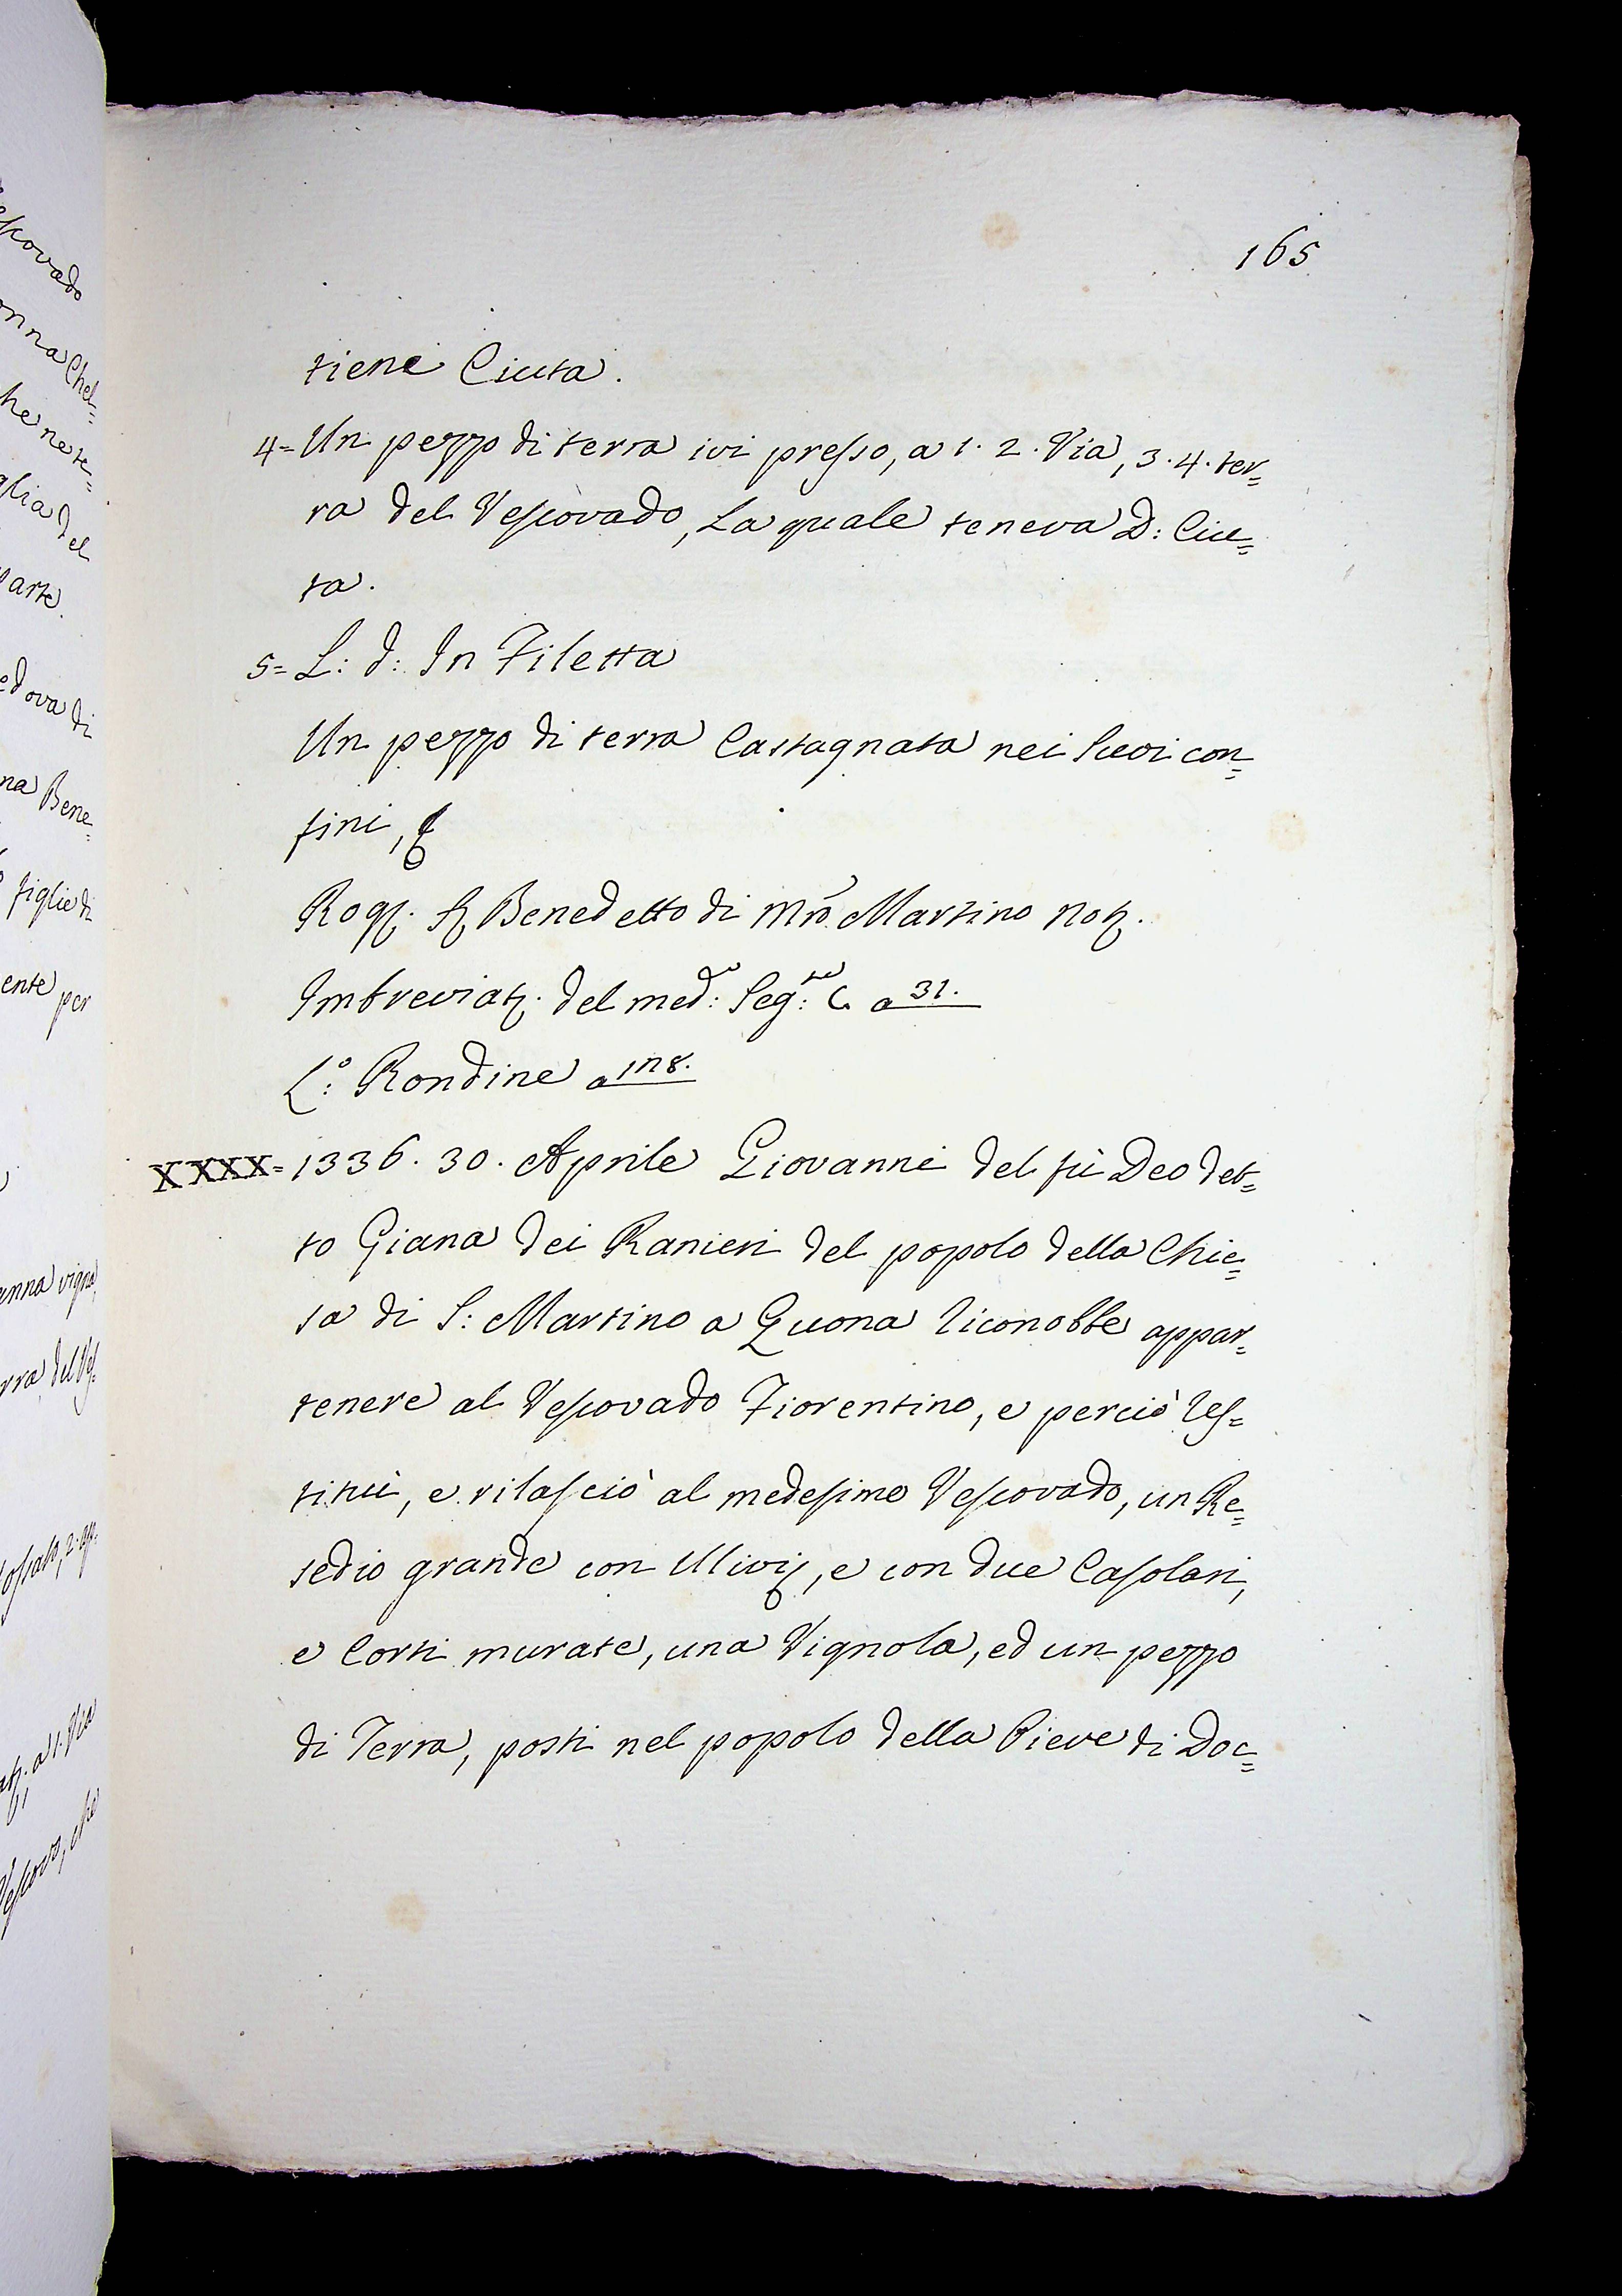 165
tiene Ciuta.
4= Un pezzo di terra ivi presso, a 1. 2. Via, 3. 4. ter=
ra del Vescovado, La quale teneva D: Ciu=
ta.
5= L: d: In Filetta
Un pezzo di terra Castagnata nei Suoi con=
fini,
Rog. Benedetto di Mro. Martino Not.
Imbreviat. del med: Seg: C. a 31.
L:o Rondine a
XXXX= 1336. 30. Aprile Giovanni del fù Deo det=
to Giana dei Ranieri del popolo della Chie=
sa di S: Martino a Quona riconobbe appar=
tenere al Vescovado Fiorentino, e perciò res=
tituì, e rilasciò al medesimo Vescovado, un Re=
sedio grande con Ulivi, e con due Casolari,
e Corti murate, una Vignola, ed un pezzo
di Terra, posti nel popolo della Pieve di Doc=